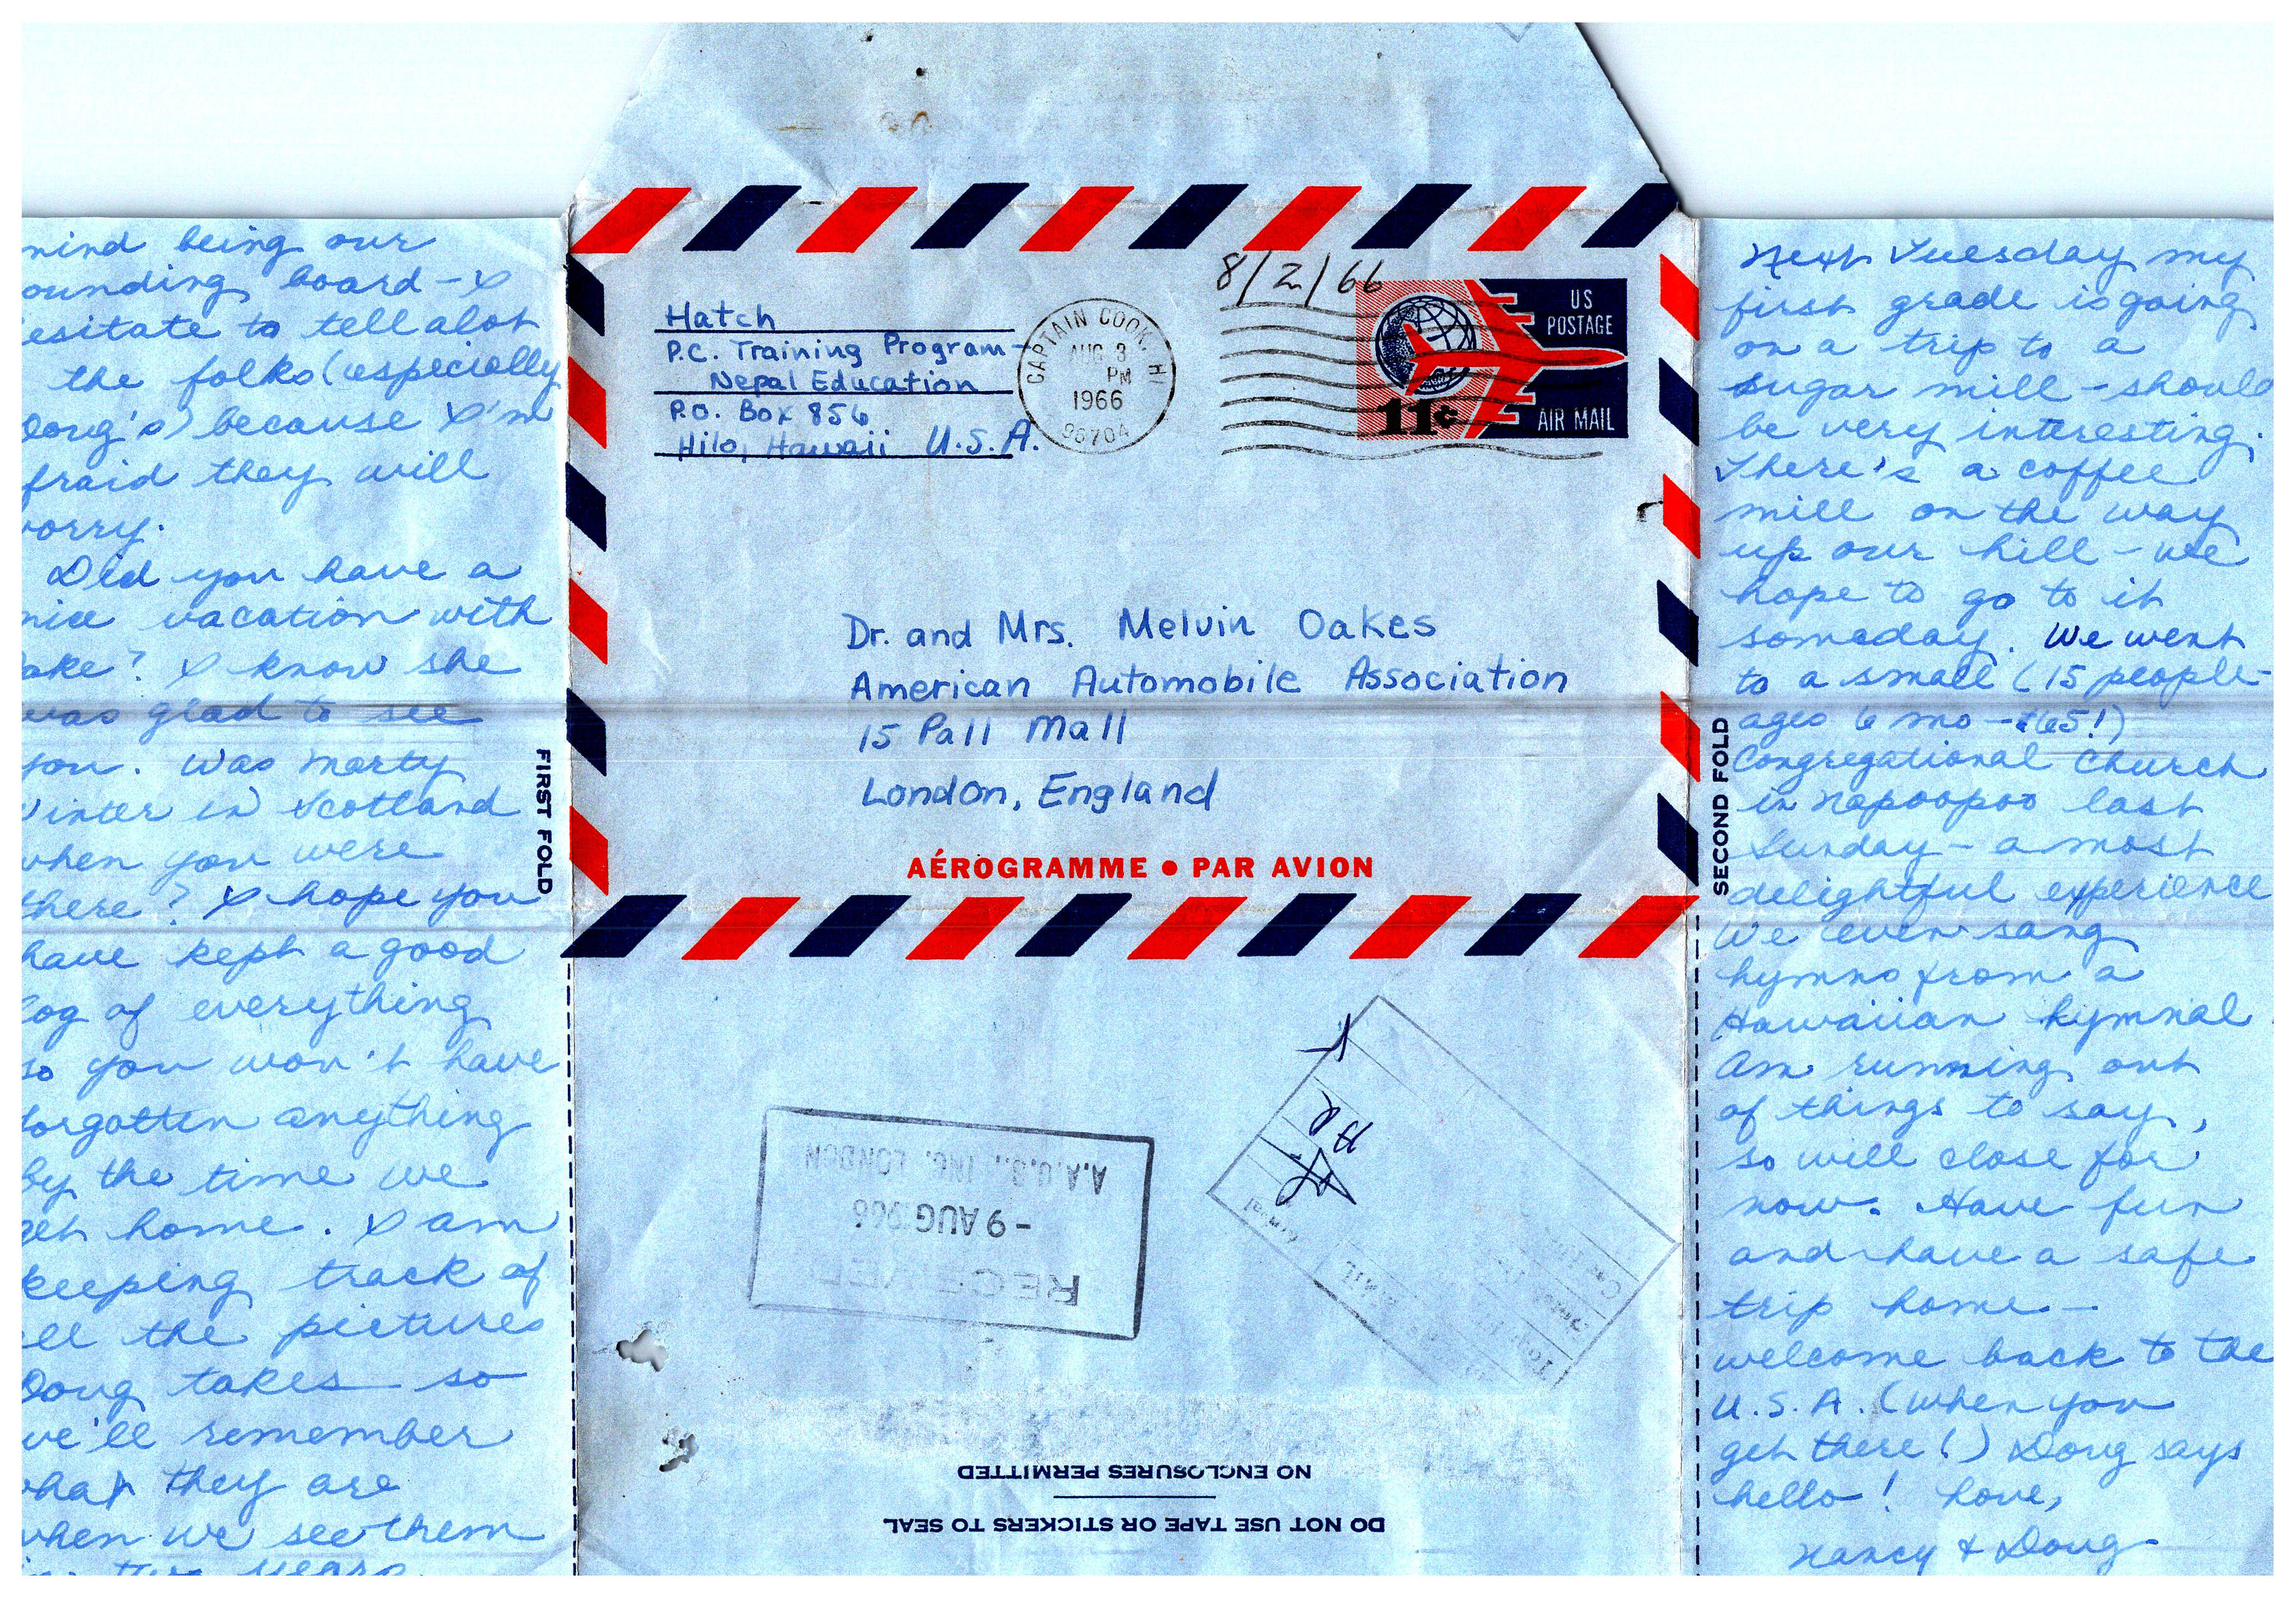 mind being our
ounding board - I
esitate to tell alot
the folks (especially
Doug's) because I'm
fraid they will
worry.
Did you have a
nice vacation with
ake? I know she
was glad to see
you. Was Marty
Vinter in Scotland
when you were
there? I hope you
have kept a good
log of everything
so you won't have
forgotten anything
by the time we
get home. I am
keeping track of
all the pictures
Doug takes so
we'll remember
what they are
when we see them
in two years.
FIRST FOLD
8/2/66
Hatch
P.C. Training Program-
Nepal Education
P.O. Box 856
Hilo, Hawaii U.S.A.
CAPTAIN COOK, HI
AUG 3
PM
1966
96704
US
POSTAGE
11¢
AIR MAIL
Dr. and Mrs. Melvin Oakes
American Automobile Association
15 Pall Mall
London, England
AÉROGRAMME • PAR AVION
RECEIVED
-9 AUG 1966
A.A.O.S., INC. LONDON
NO ENCLOSURES PERMITTED
DO NOT USE TAPE OR STICKERS TO SEAL
SECOND FOLD
Next Tuesday my
first grade is going
on a trip to a
sugar mill - should
be very interesting.
There's a coffee
mill on the way
up our hill - we
hope to go to it
someday. We went
to a small (15 people-
ages 6 mo - 65!)
Congregational Church
in Napoopoo last
Sunday - a most
delightful experience
We even sang
hymns from a
Hawaiian hymnal.
Am running out
of things to say,
so will close for
now. Have fun
and have a safe
trip home -
welcome back to the
U.S.A. (when you
get there!) Doug says
hello! Love,
Nancy & Doug